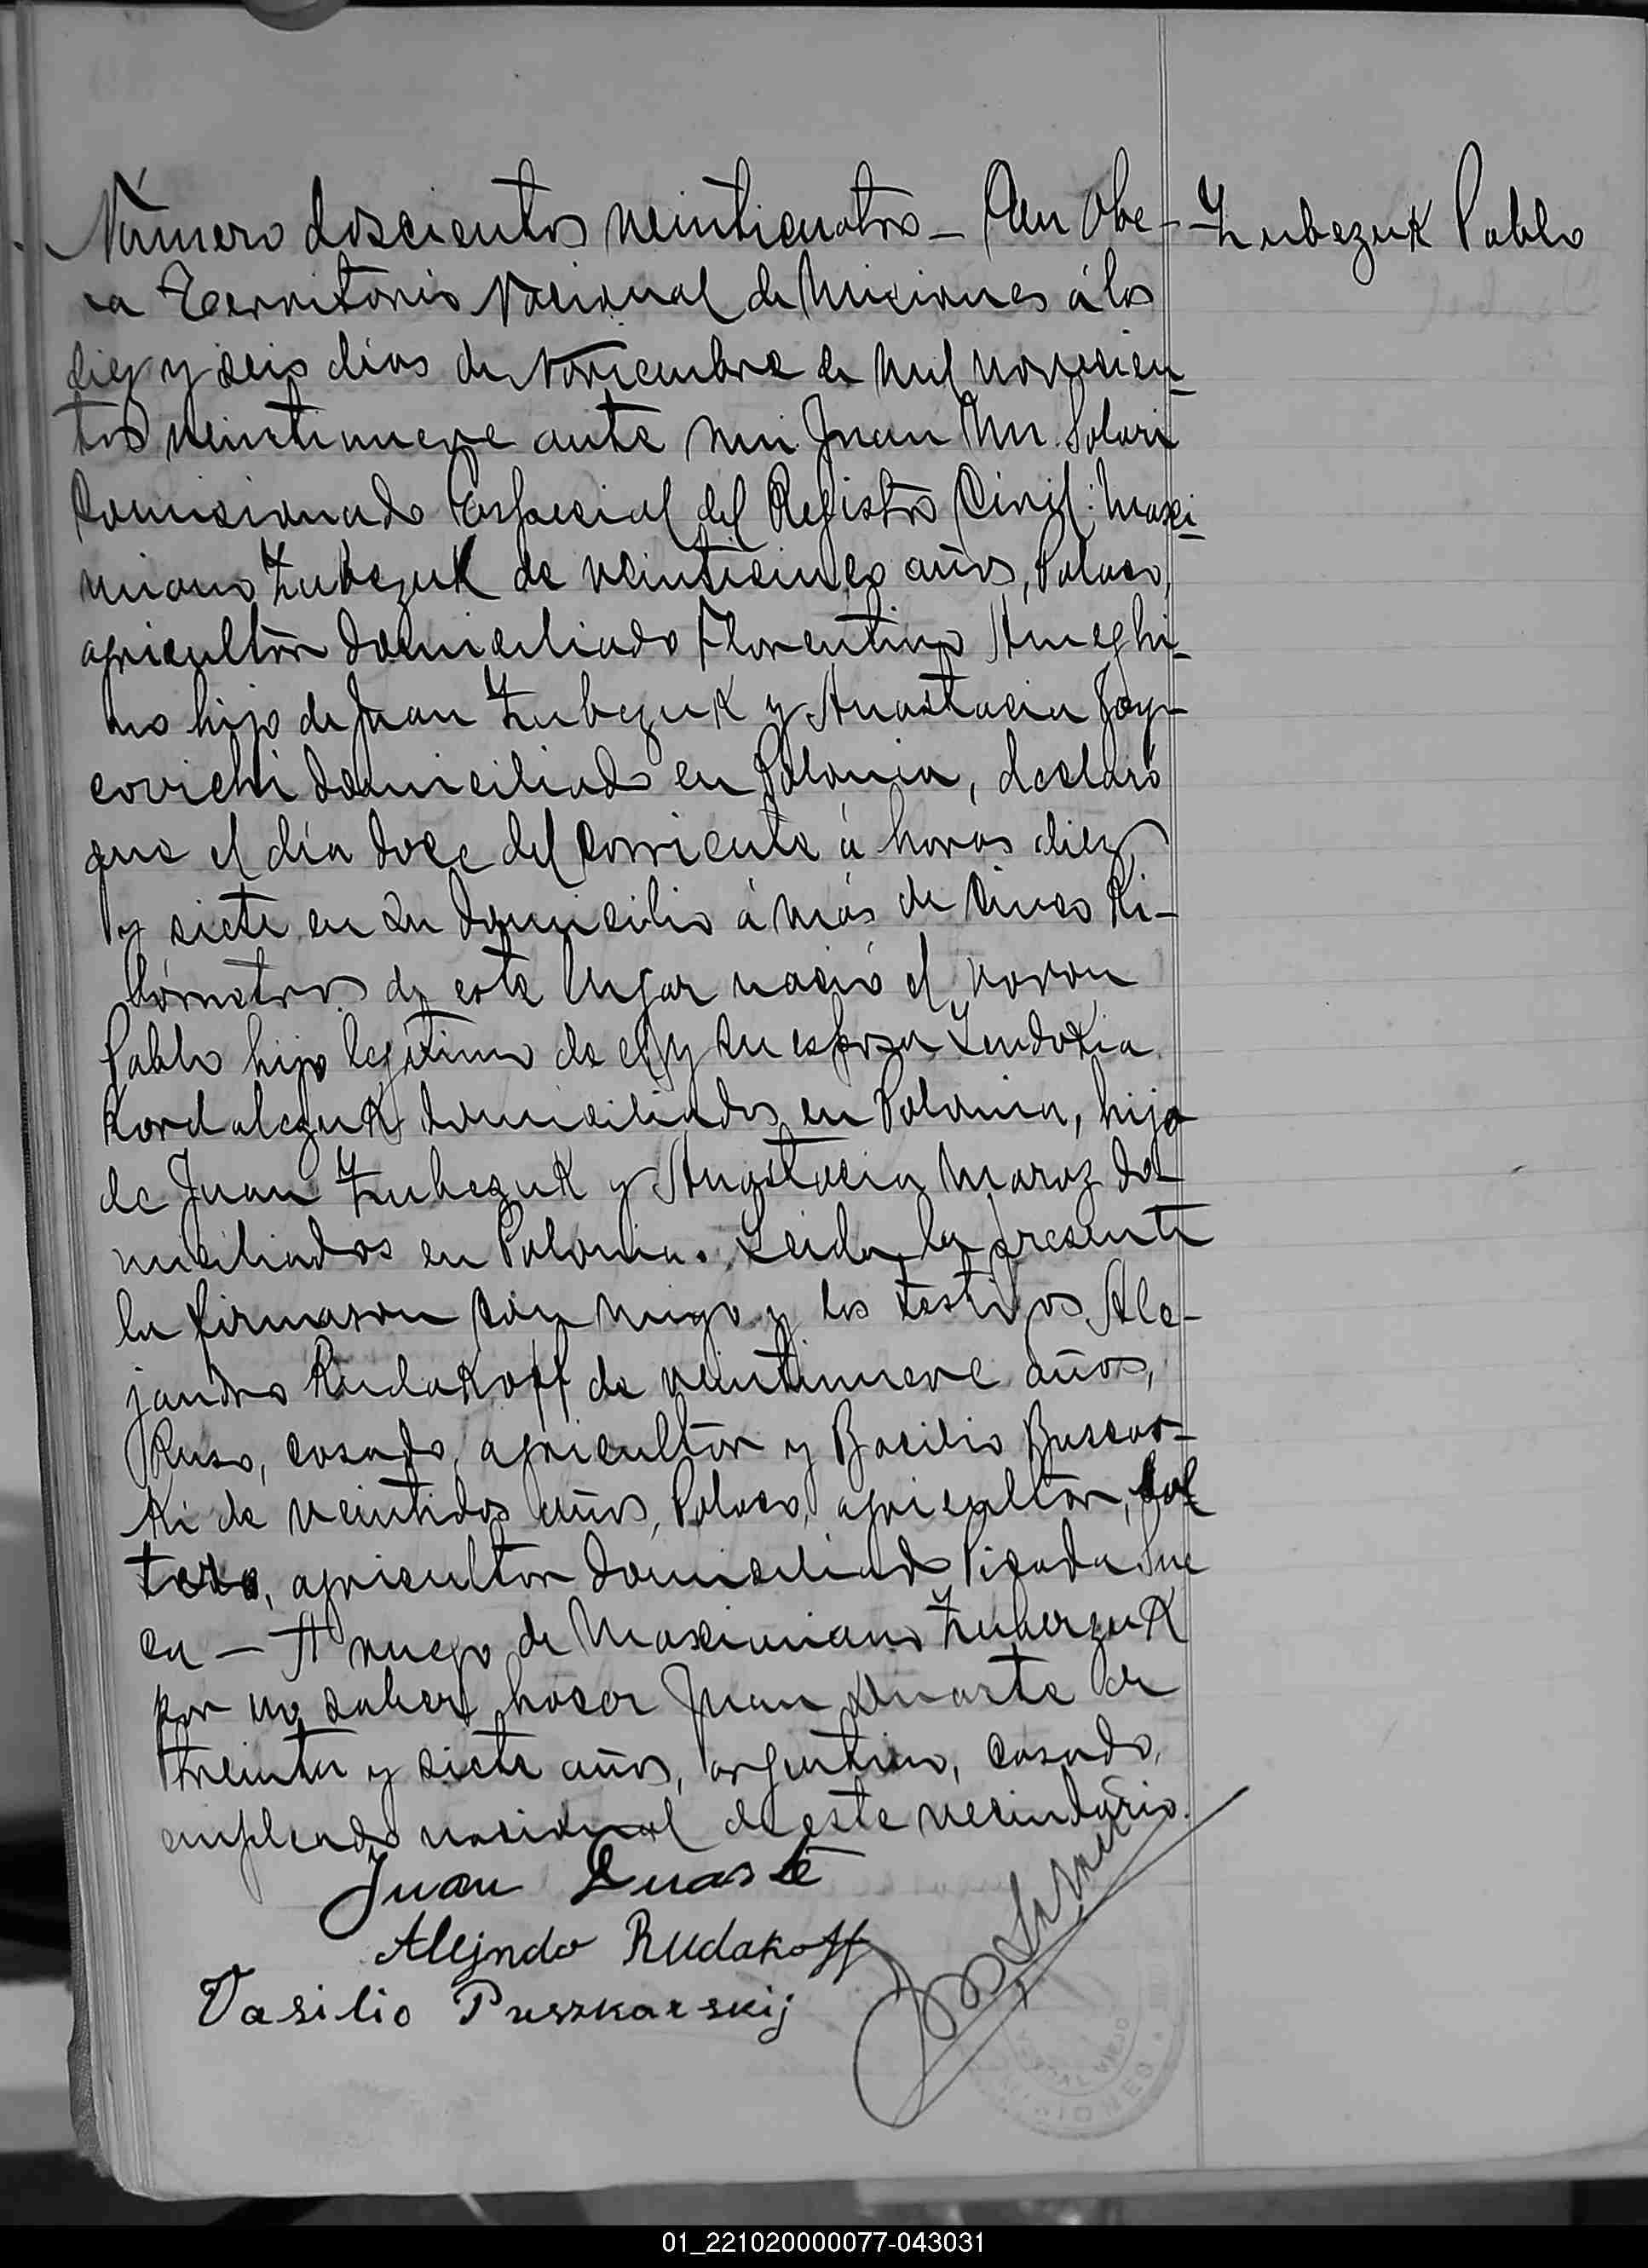 Número doscientos veinticuatro — En Obe-
Zubezuk Pablo
ra Territorio Nacional de Misiones á los
diez y seis dias de Noviembre de mil novecien-
tos veintinueve ante mi Juan M. Solari
Comisionado Especial del Registro Civil: Maxi-
miano Zubezuk de veinticinco años, Polaco,
agricultor domiciliado Florentino Ameghi-
no hijo de Juan Zubezuk y Anastacia
domiciliado en Polonia, declaró
que el día doce del corriente á horas diez
y siete en su domicilio á más de cinco ki-
lómetros de este lugar nació el varon
Pablo hijo legítimo de el y su esposa Eudokia
Kordalezuk domiciliados en Polonia, hija
de Juan Zubezuk y Anastacia Maroz do-
miciliados en Polonia. Leida la presente
la firmaron con migo y los testigos Ale-
jandro Rudakoff de veintinueve años,
Ruso, casado, agricultor y Basilio Buscar-
ki de veintidos años, Polaco, agricultor, sol-
tero, agricultor domiciliado Picada Sue
ca — A ruego de Maximiano Zuberzuk
por no saber hacer Juan Duarte de
treinta y siete años, argentino, casado,
empleado nacional de este vecindario.
Juan Duarte
Alejndo Rudakoff
Vasilio Puszkarskij
MISIONES
01_221020000077-043031